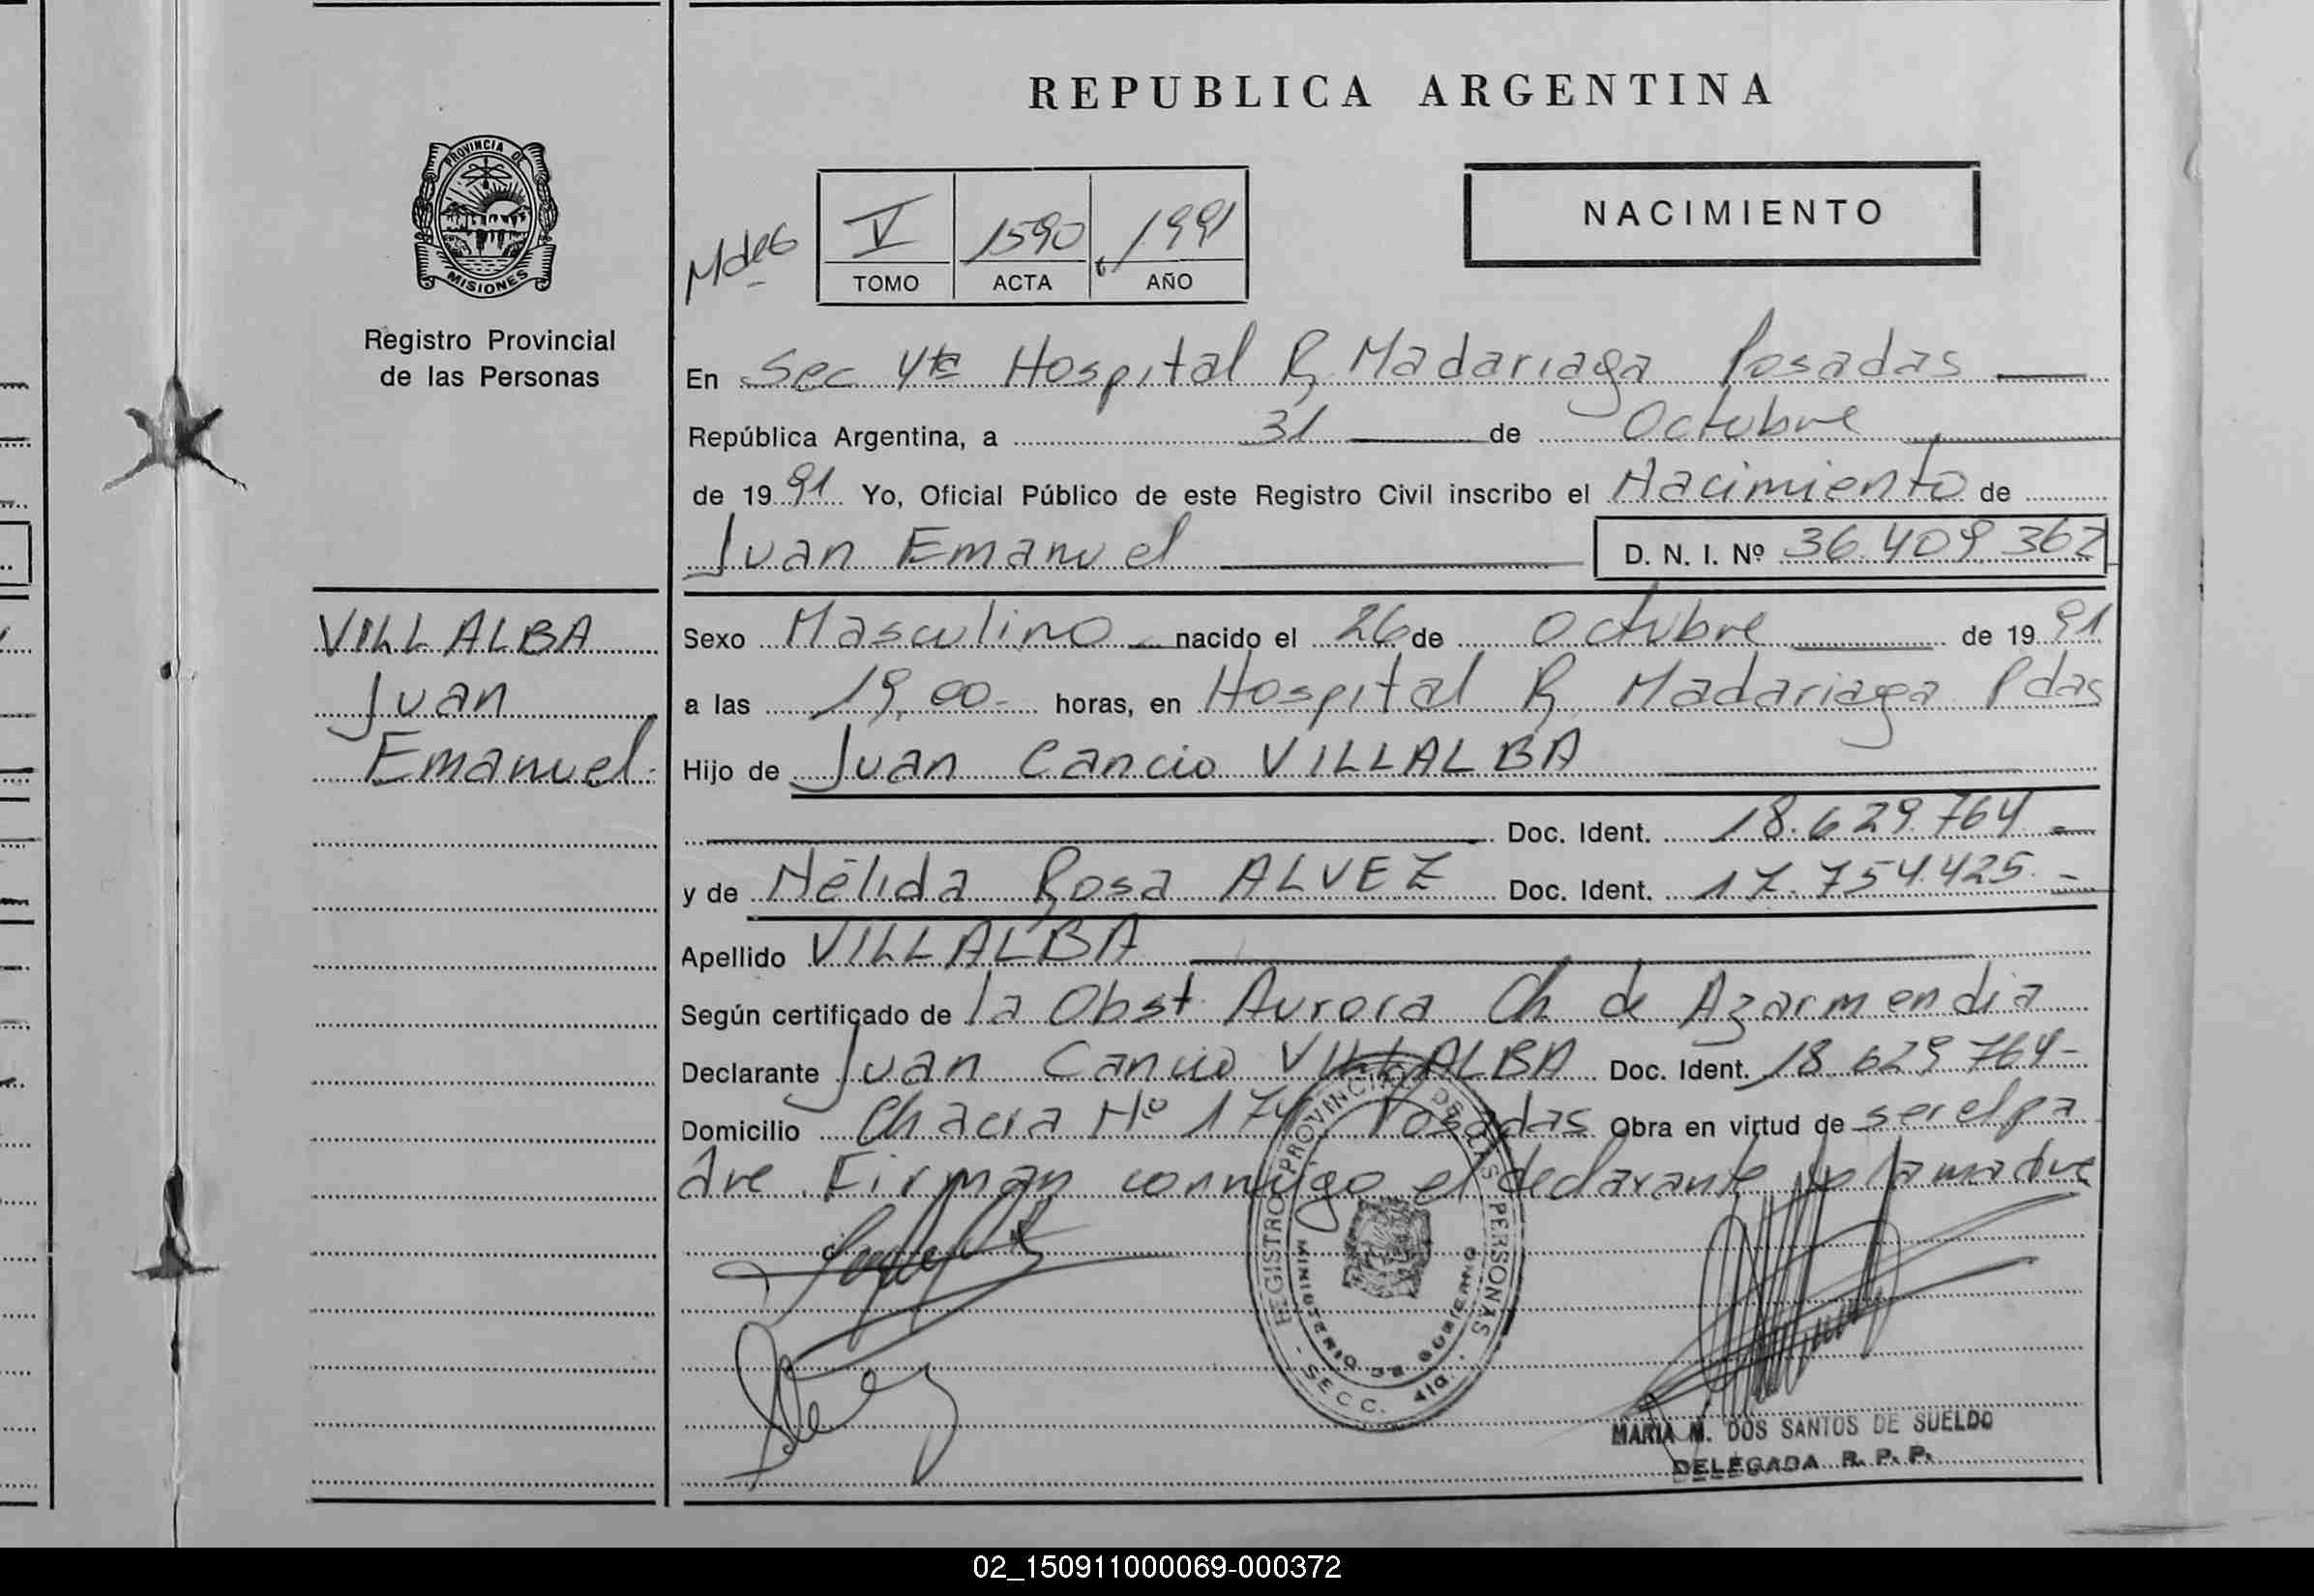 REPUBLICA ARGENTINA
PROVINCIA DE
MISIONES
Registro Provincial
de las Personas
V 1590 1991
TOMO ACTA AÑO
NACIMIENTO
En Sec 4ta Hospital R. Madariaga Posadas
República Argentina, a 31 de Octubre
de 1991 Yo, Oficial Público de este Registro Civil inscribo el Nacimiento de
Juan Emanuel D. N. I. Nº 36.409.362
VILLALBA
Juan
Emanuel.
Sexo Masculino nacido el 26 de Octubre de 1991
a las 19,00- horas, en Hospital R. Madariaga Pdas
Hijo de Juan Cancio VILLALBA
Doc. Ident. 18.629.764
y de Nélida Rosa ALVEZ Doc. Ident. 17.754.425.-
Apellido VILLALBA
Según certificado de la Obst. Aurora Ch de Azarmendia
Declarante Juan Cancio VILLALBA Doc. Ident. 18.629.764-
Domicilio Chacra Nº 174 Posadas Obra en virtud de ser el pa
dre. Firman conmigo el declarante y la madre
REGISTRO PROVINCIAL DE LAS PERSONAS
MINISTERIO DE GOBIERNO
- SECC. 4ta. -
MARIA M. DOS SANTOS DE SUELDO
DELEGADA R. P. P.
02_150911000069-000372